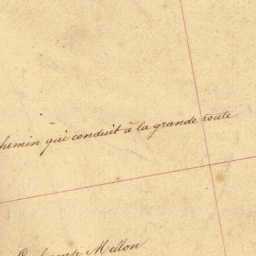 chemin qui conduit à la grande route
Millon